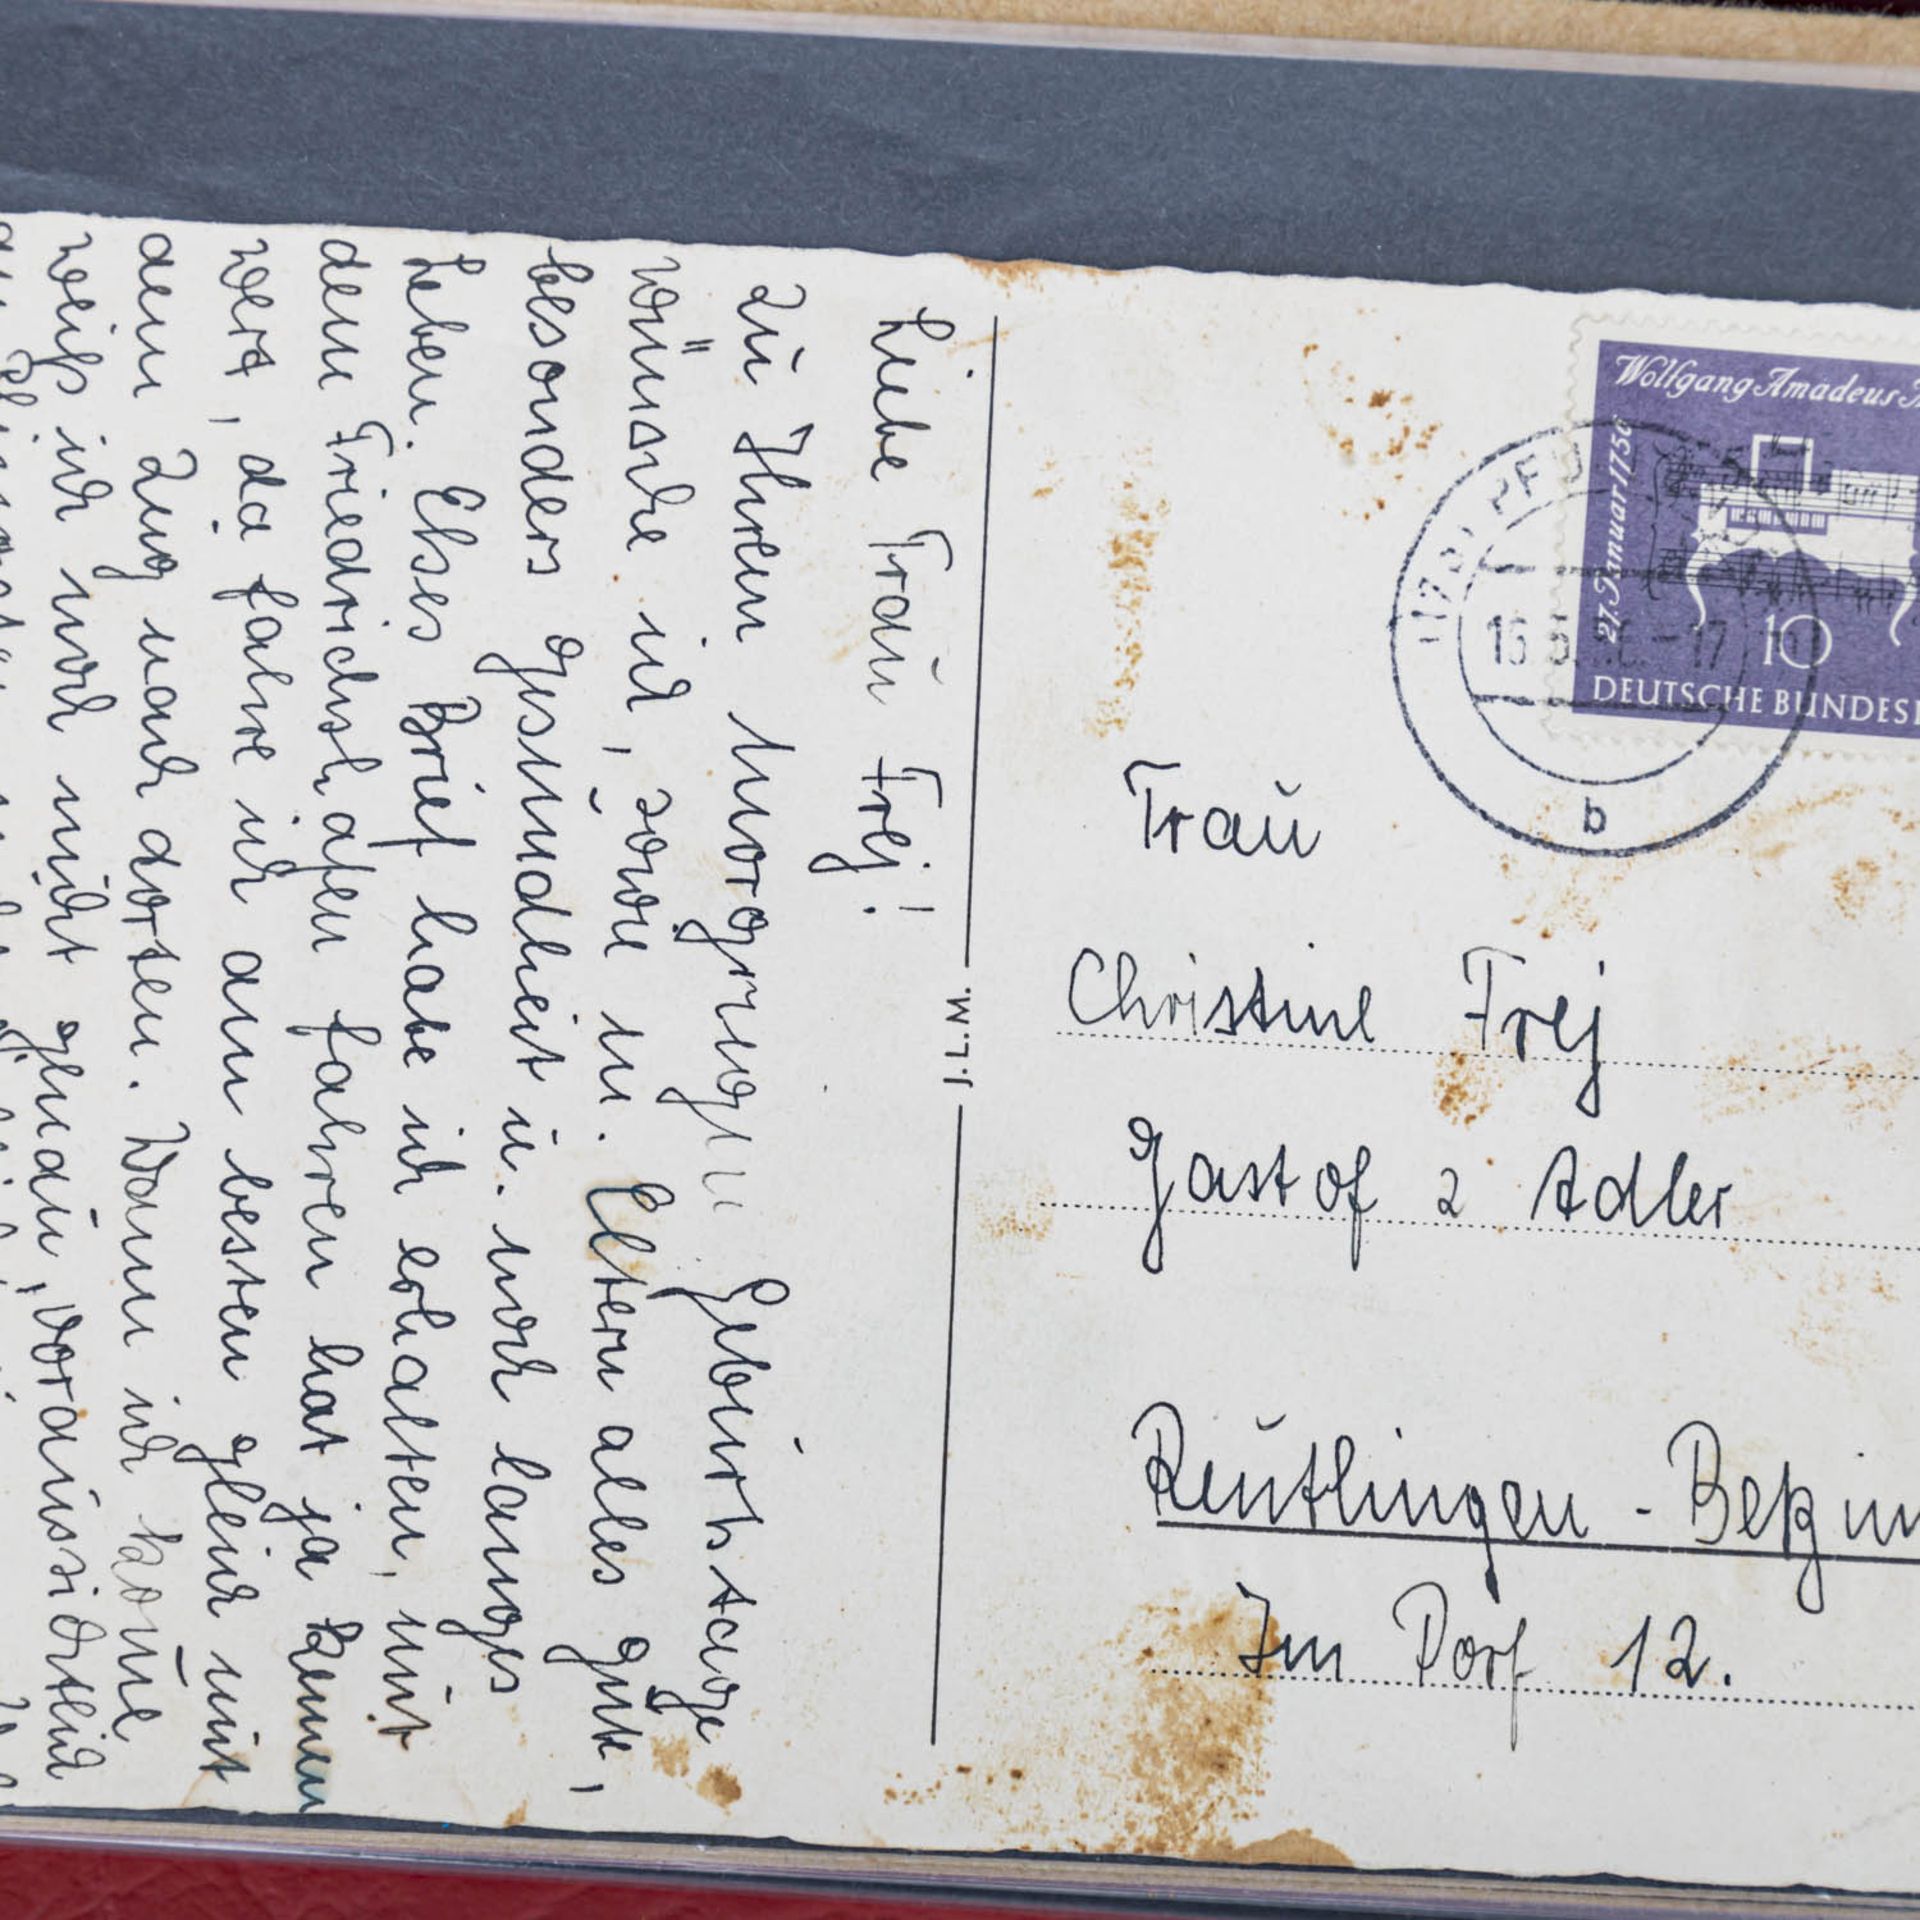 Liebe Frau Frej!
Zu Ihrem morgigen Geburtstage
wünsche ich, sowie m. Eltern alles gute,
besonders Gesundheit u. noch langes
Leben. Elses Brief habe ich erhalten, mit
dem Friedrichshafen fahren hat ja keinen
wert, da fahre ich am besten gleich mit
dem Zug nach dorten. Wann ich kome
weiß ich noch nicht genau, voraussichtlich
J.L.M.
Wolfgang Amadeus
27. Januar 1756
10
DEUTSCHE BUNDESP
-17
b
Frau
Christine Frej
Gastof z Adler
Reutlingen - Betzin
Im Dorf 12.